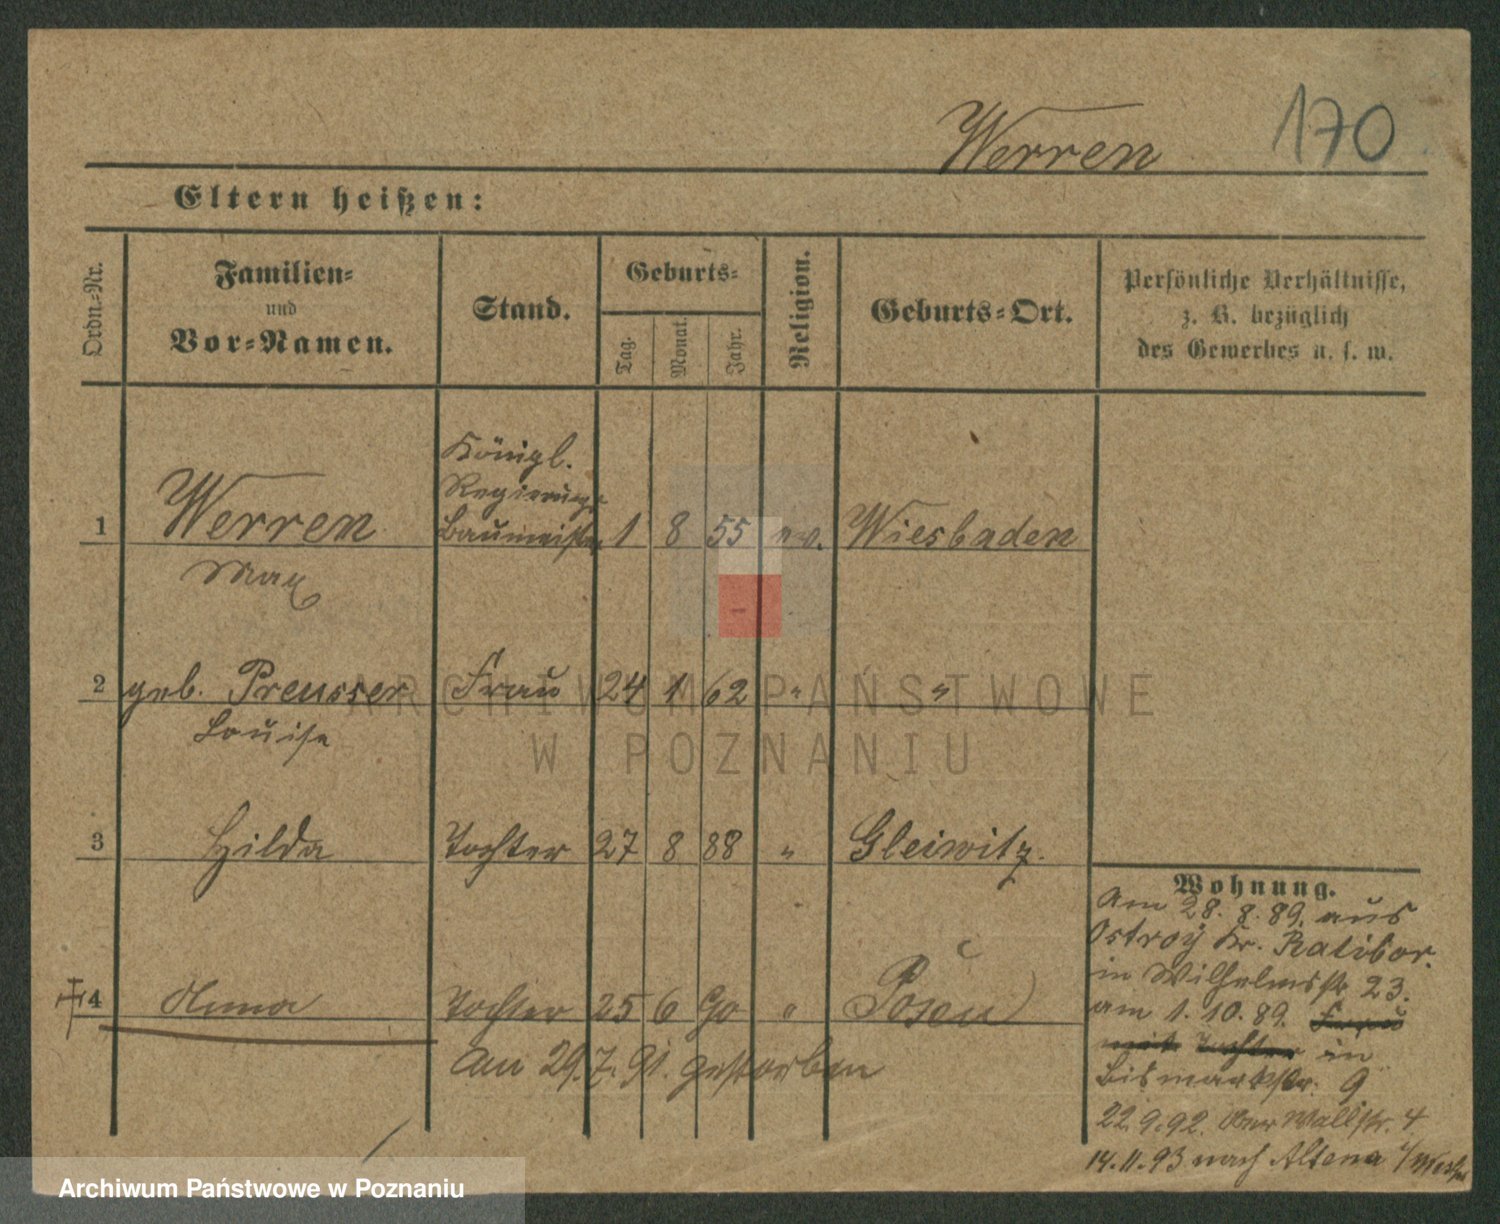 Werren 170
Eltern heißen:
Ordn.=Nr.
Familien=
und
Vor=Namen.
Stand.
Geburts=
Tag. Monat. Jahr.
Religion.
Geburts=Ort.
Persönliche Verhältnisse,
z. B. bezüglich
des Gewerbes u. s. w.
Königl.
Regierungs
1 Werren Baumeister 1 8 55 ev. Wiesbaden
Max
2 geb. Preusser Frau 24 1 62 " "
Louise
3 Hilda Tochter 27 8 88 " Gleiwitz.
4 Anna Tochter 25 6 90 " Posen
am 29.7.91. gestorben
Wohnung.
Am 28. 8. 89. aus
Ostroy Kr. Ratibor.
in Wilhelmstr 23.
am 1. 10. 89. Frau
mit Tochter in
Bismarckstr. 9
22.9.92. Ober Wallstr. 4
14.11.93 nach Altena
ARCHIWUM PAŃSTWOWE
W POZNANIU
Archiwum Państwowe w Poznaniu